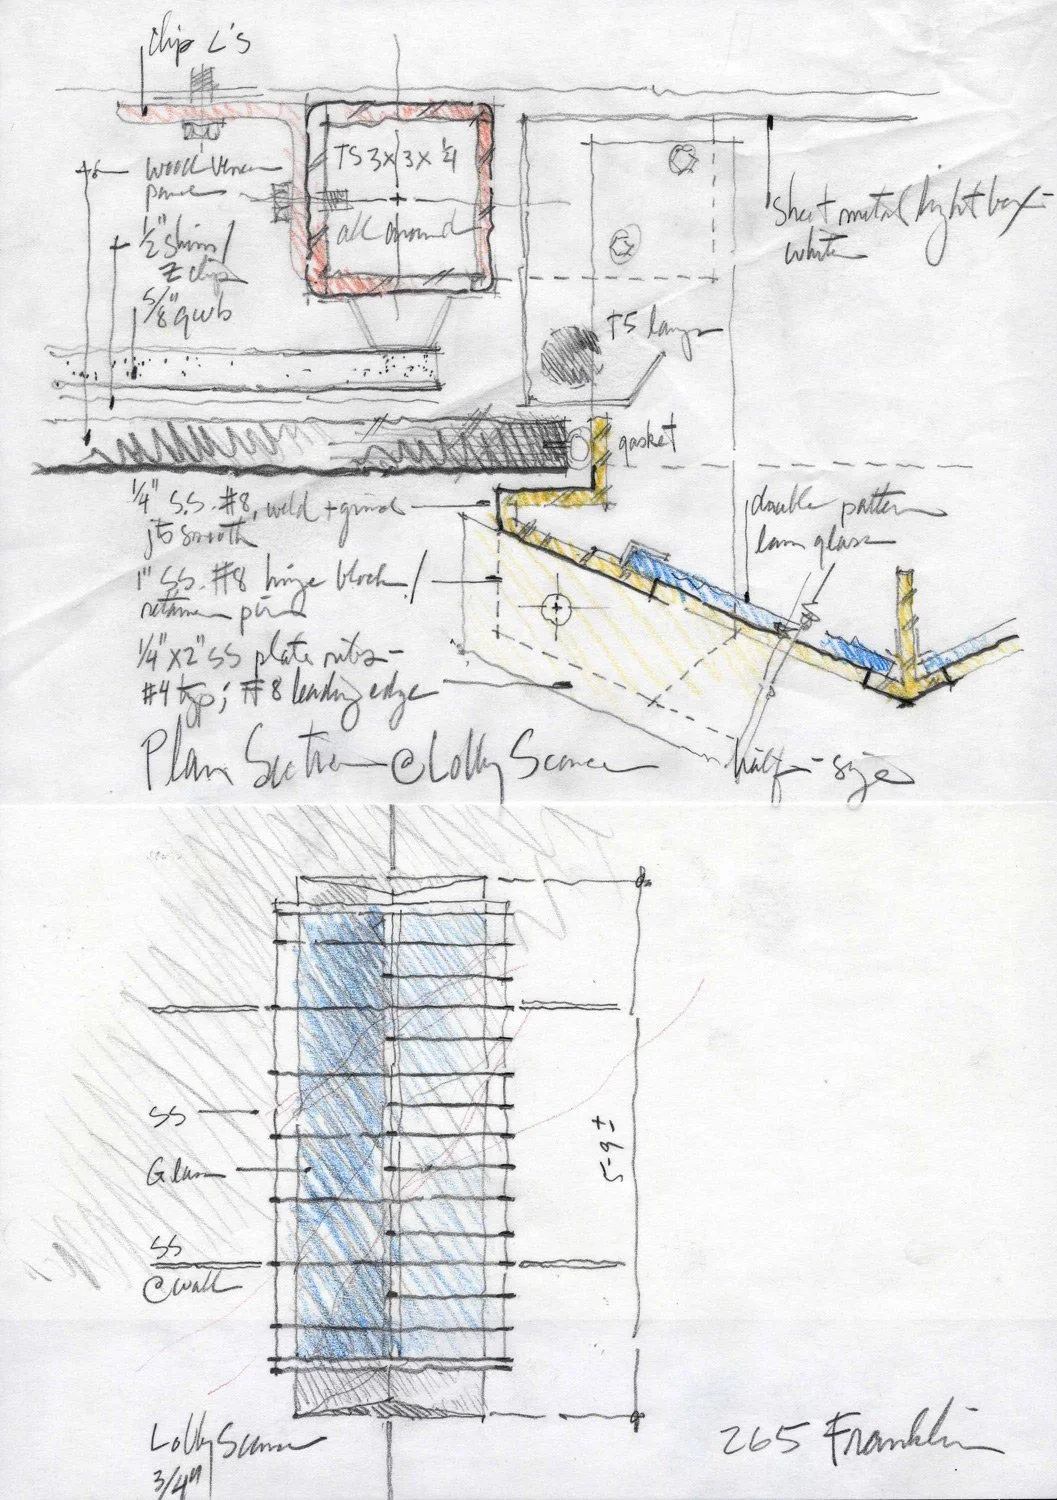 clip L's
TS 3 x 3 x 1/4
all around
wood veneer
panel
1/2" shim/
Z clip
5/8" gwb
sheet metal light box-
white
T5 lamp
gasket
1/4" S.S. #8, weld + grind
jts smooth
double pattern
lam glass
1" SS. #8 hinge block/
retainer pin
1/4" x 2" SS plate ribs-
#4 typ; #8 leading edge
Plan Section @ Lobby Sconce
half-size
SS
Glass
5-9 ±
SS
@ wall
Lobby Sconce
3/4"
265 Franklin